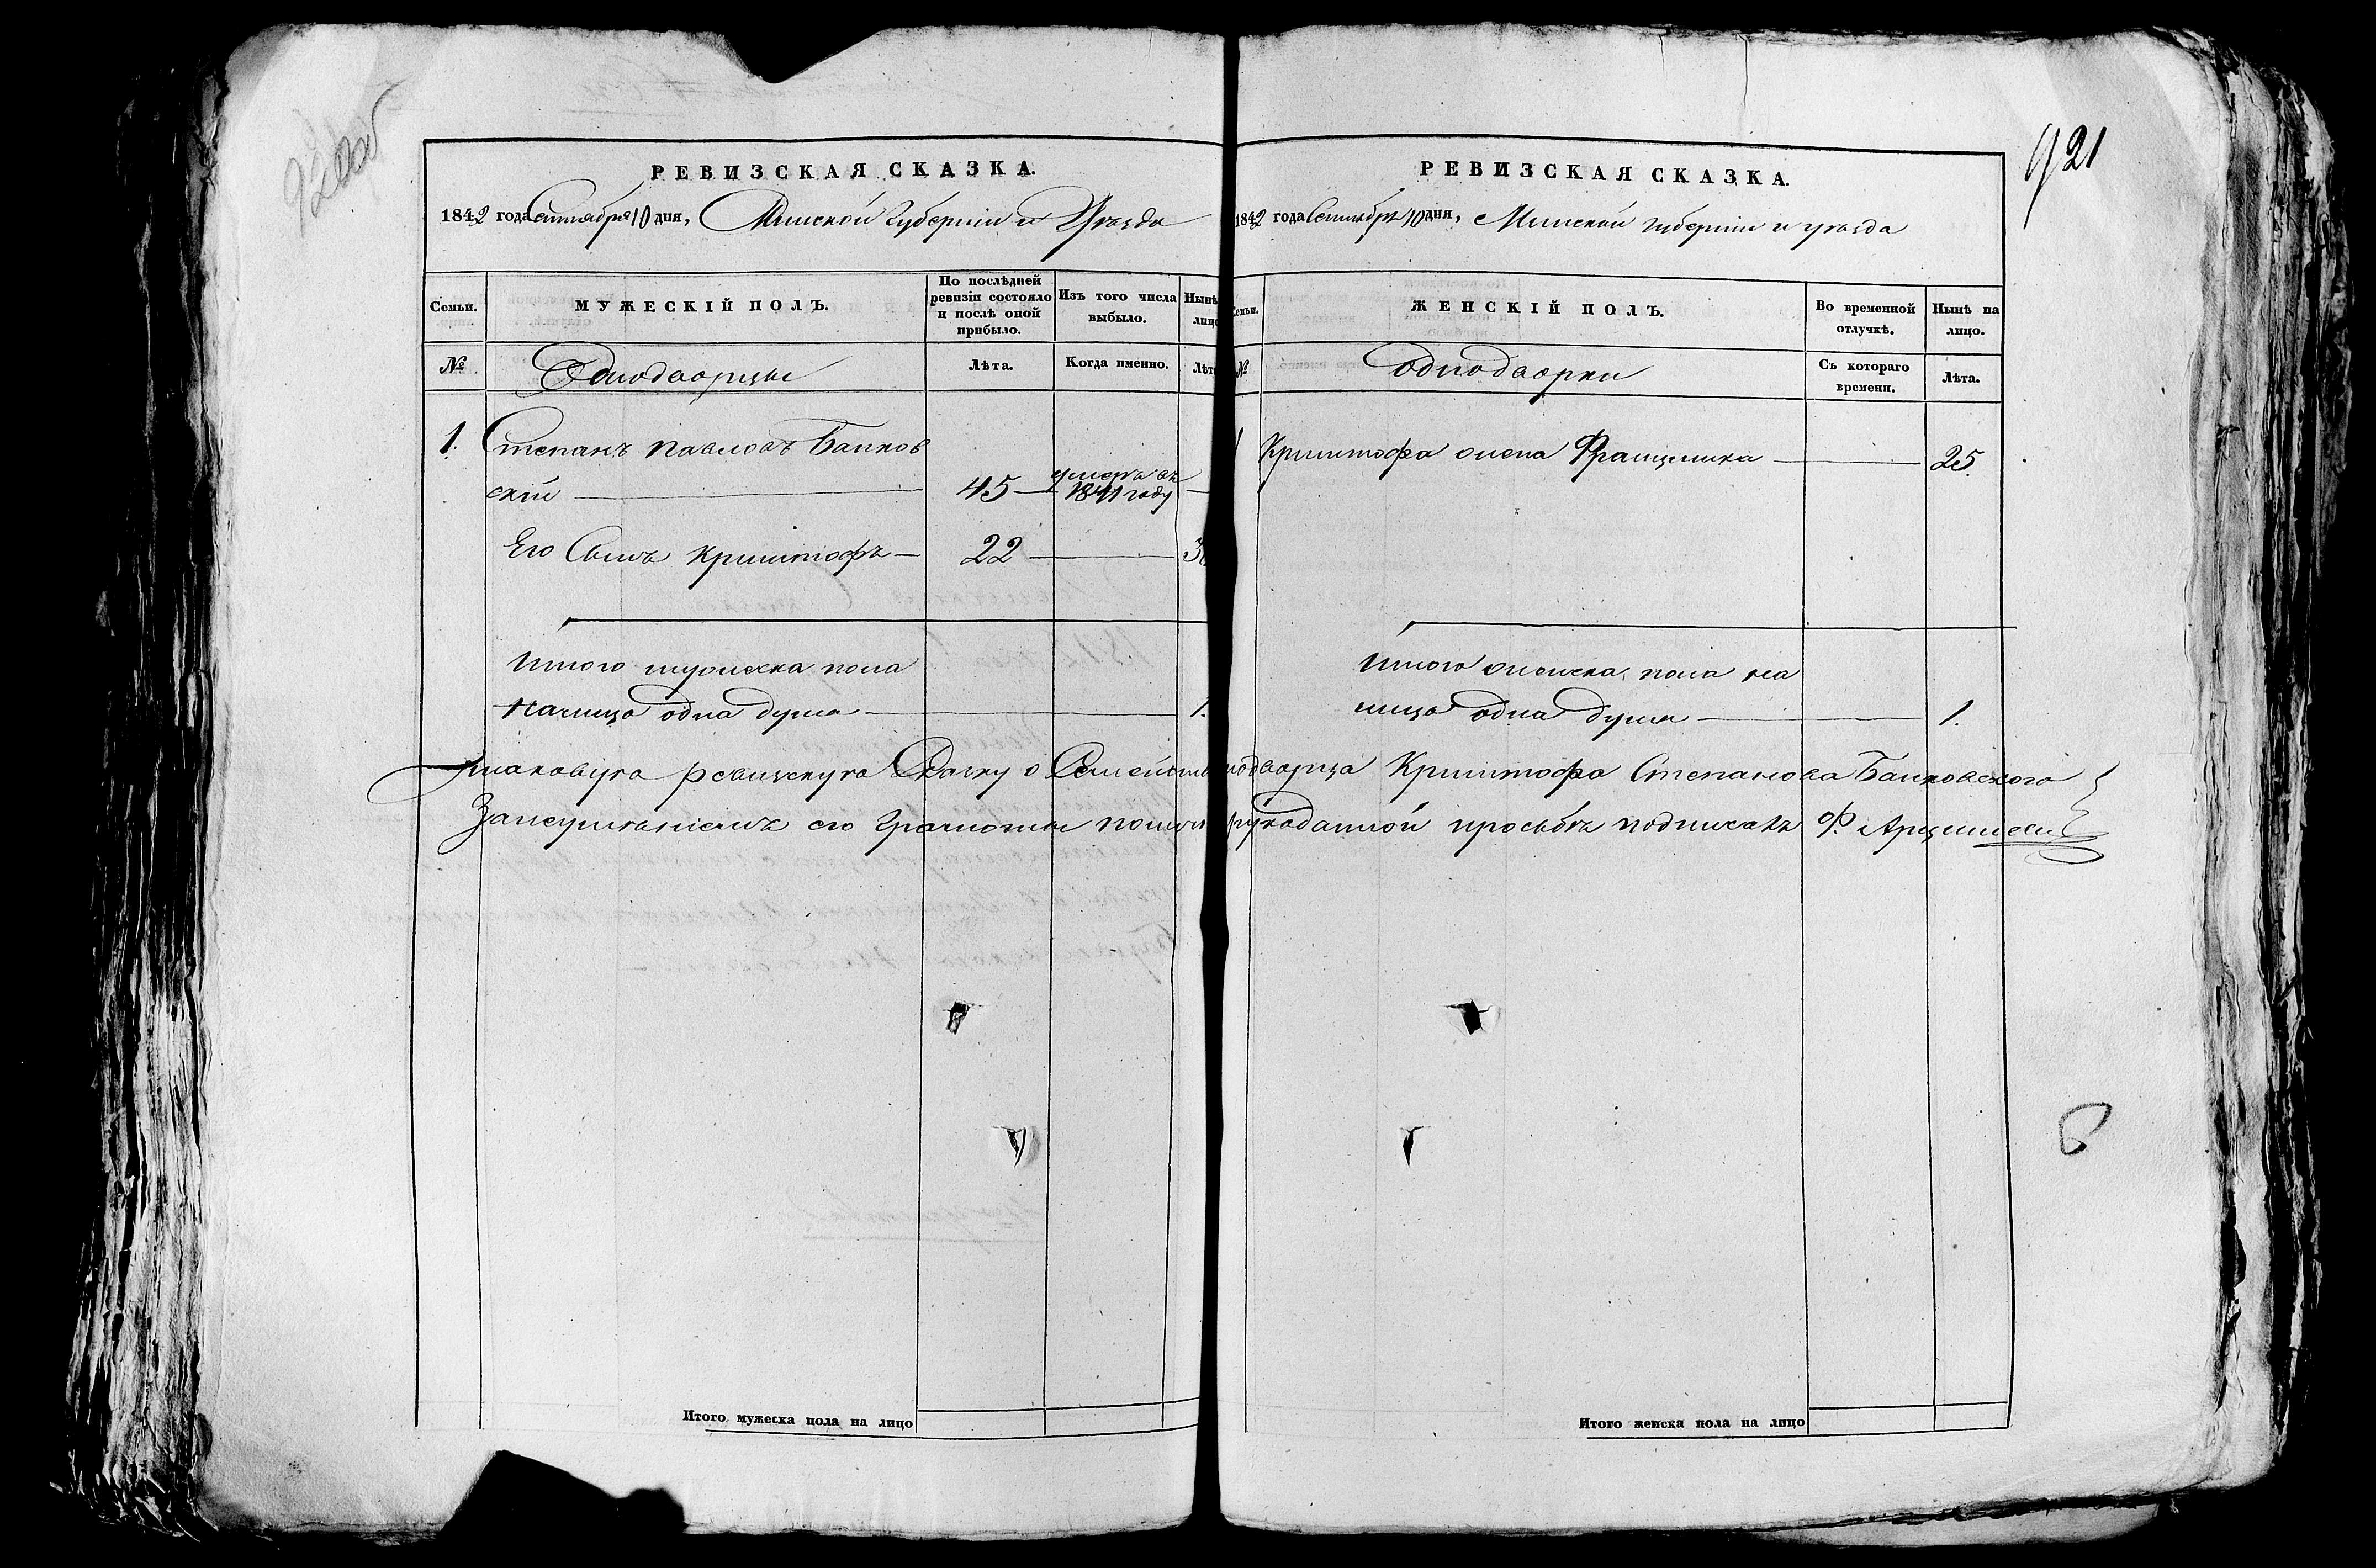 921
РЕВИЗСКАЯ СКАЗКА.
1842 года Сентября 10 дня, Минской Губерніи и Уѣзда
Семьи.
МУЖЕСКІЙ ПОЛЪ.
По послѣдней ревизіи состояло и послѣ оной прибыло.
Изъ того числа выбыло.
Нынѣ
лицо
№
Однодворцы
Лѣта.
Когда именно.
Лѣт
1. Степанъ Павловъ Банков
скій — 45 — умеръ въ 1841 году —
Его Сынъ Криштофъ — 22 —
Итого мужеска пола
налицо одна душа — 1.
РЕВИЗСКАЯ СКАЗКА.
1842 года Сентября 10 дня, Минской губерніи и уѣзда
Семьи.
ЖЕНСКІЙ ПОЛЪ.
Во временной отлучкѣ.
Нынѣ на лицо.
№
однодворки
Съ котораго времени.
Лѣта.
1 Криштофа жена Францишка — 25.
Итого женска пола на
лицо одна душа — 1.
Таковую ревизскую Сказку о Семейств нодворца Криштофа Степанова Банковского
За неумѣніемъ его Грамоты по рукоданной прозьбѣ подписалъ Ф.
Итого мужеска пола на лицо
Итого женска пола на лицо